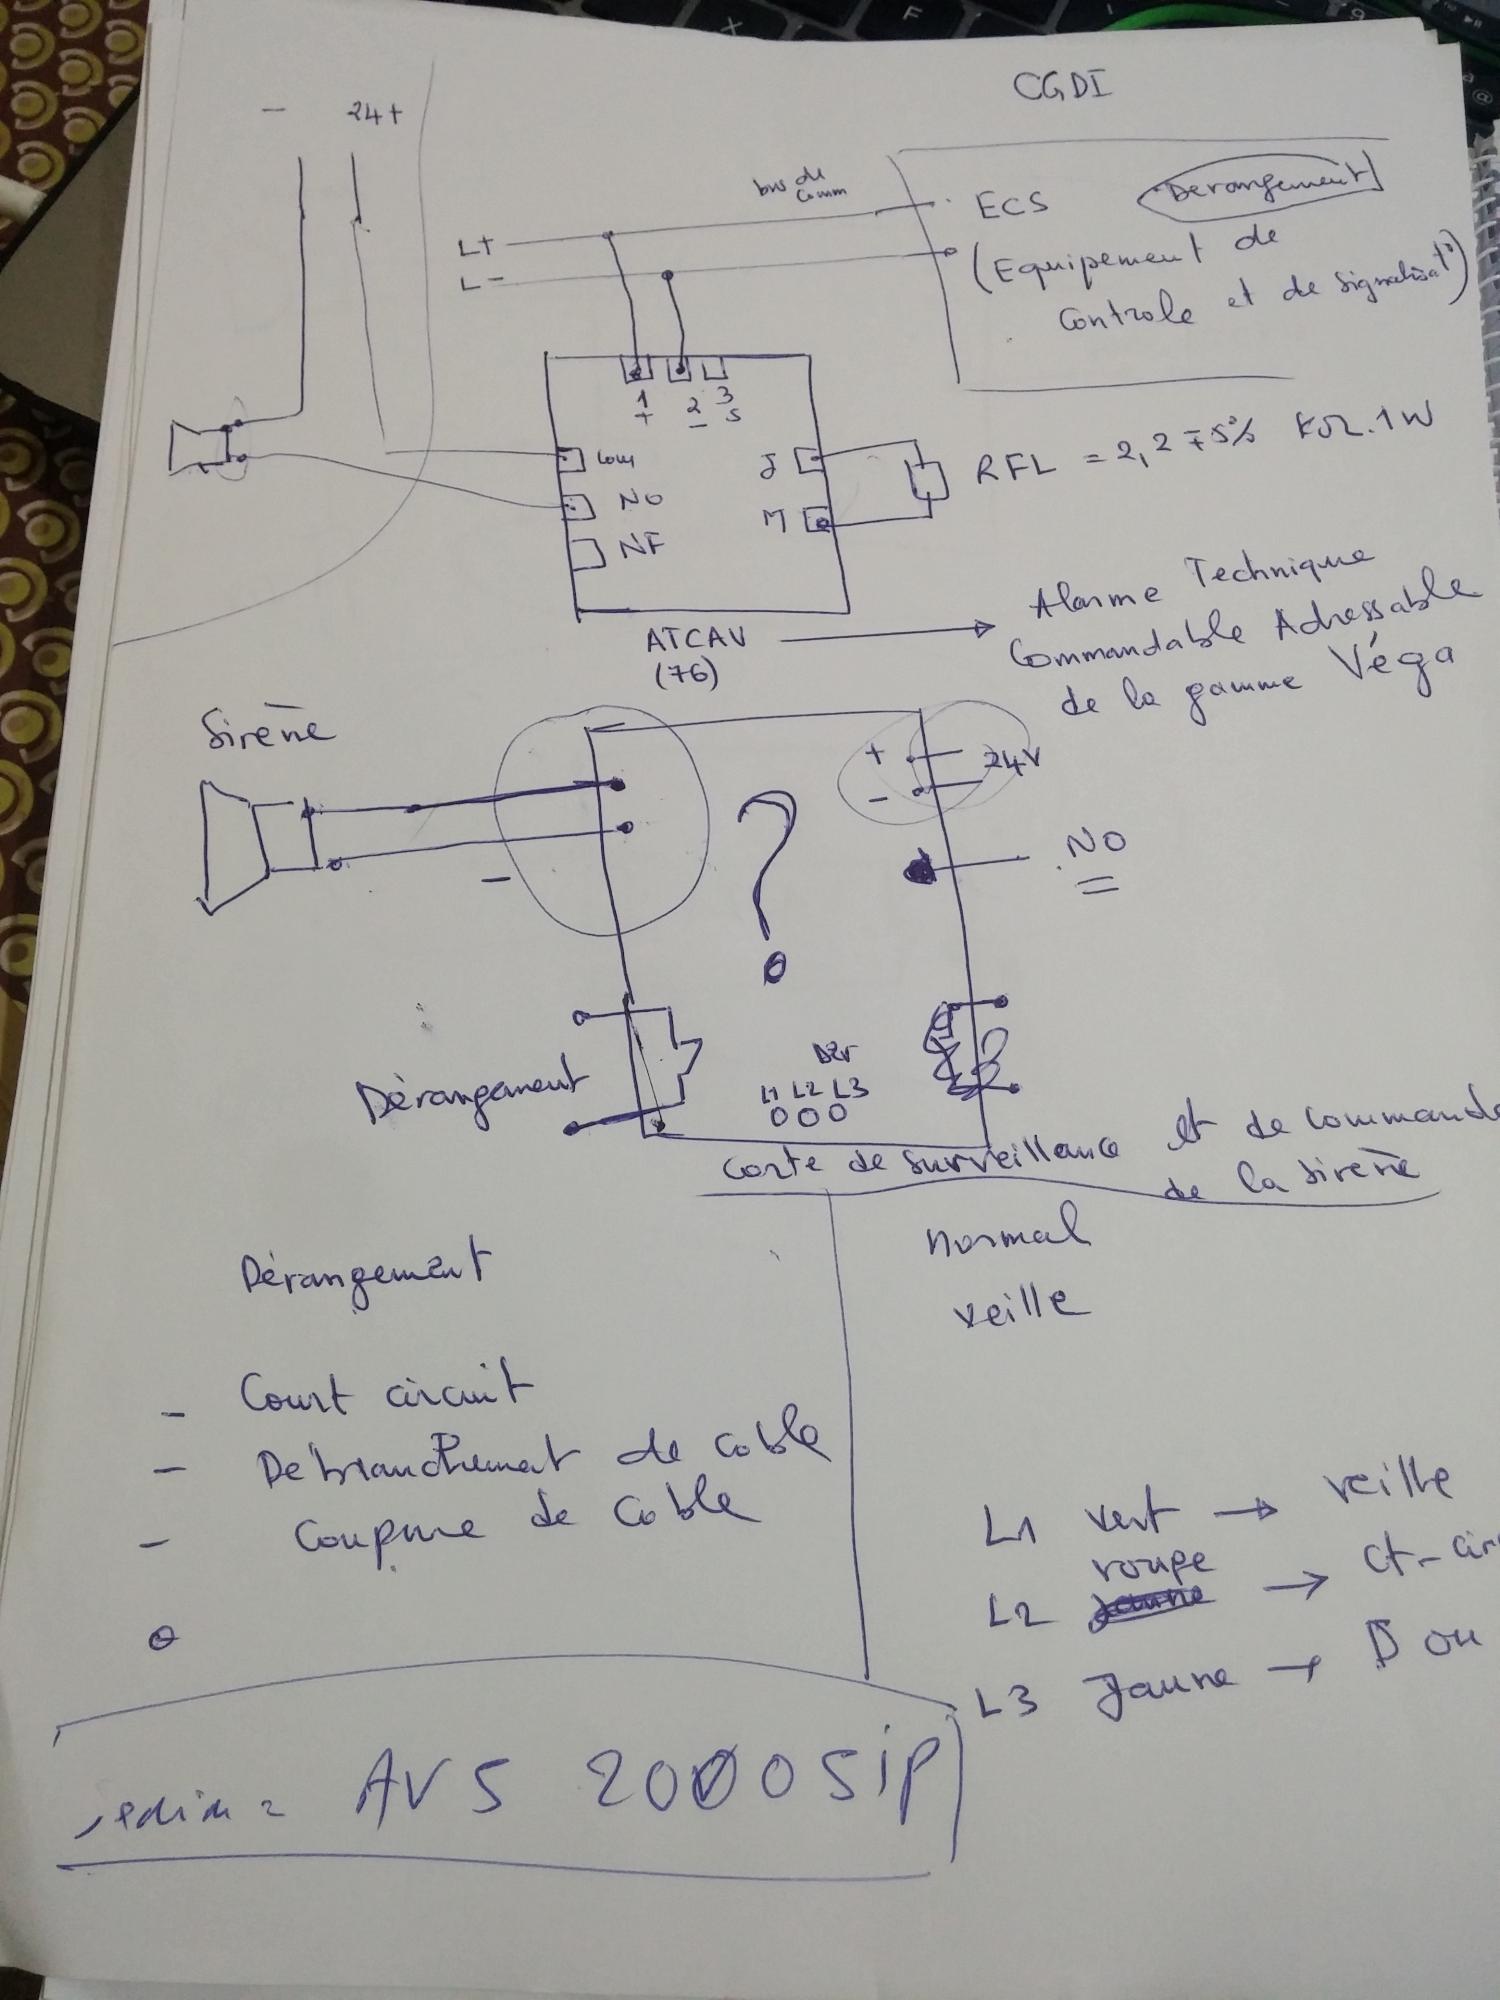 CGDI
- 24+
bus de
comm
L+
L-
ECS Derangement
(Equipement de
Controle et de signalisat°)
1 2 3
+ - S
Com
NO
NF
J
M
RFL = 2,2 ∓5% KΩ.1W
ATCAV
(76)
Alarme Technique
Commandable Adressable
de la gamme Véga
Sirène
+
-
24V
NO
-
?
Dérangement
Der
L1 L2 L3
Carte de surveillance et de commande
de la sirène
Dérangement
normal
veille
- Court circuit
- Debranchement de cable
- Coupure de Cable
L1 vert → veille
rouge
L2 → Ct-cir
L3 Jaune → D ou
AVS 2000 SiP